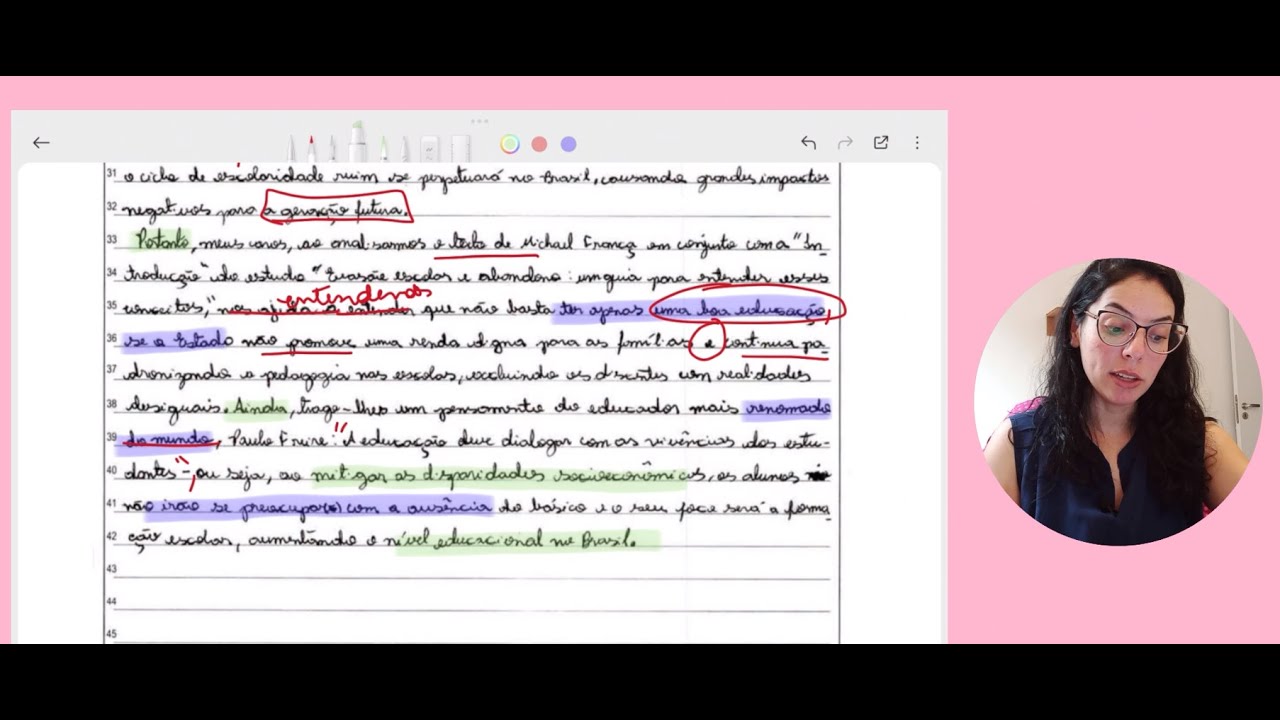 31 o ciclo de escolaridade ruim se perpetuará no Brasil, causando grandes impactos
32 negativos para a geração futura.
33 Portanto, meus caros, ao analisarmos o texto de Michael França em conjunto com a "In-
34 trodução" do estudo "Evasão escolar e abandono: um guia para entender esses
entendemos
35 conceitos," nos ajuda a entender que não basta ter apenas uma boa educação,
36 se o Estado não promove uma renda digna para as famílias e continua pa-
37 dronizando a pedagogia nas escolas, excluindo os discentes com realidades
38 desiguais. Ainda, trago-lhes um pensamento do educador mais renomado
39 do mundo, Paulo Freire: "A educação deve dialogar com as vivências dos estu-
40 dantes"-, ou seja, ao mitigar as disparidades socioeconômicas, os alunos
41 não irão se preocupar(o) com a ausência do básico e o seu foco será a forma
42 ção escolar, aumentando o nível educacional no Brasil.
43
44
45